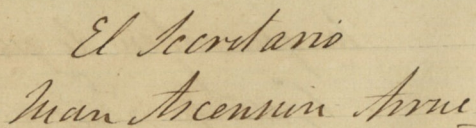 El Secretario
Juan Ascension Arrue